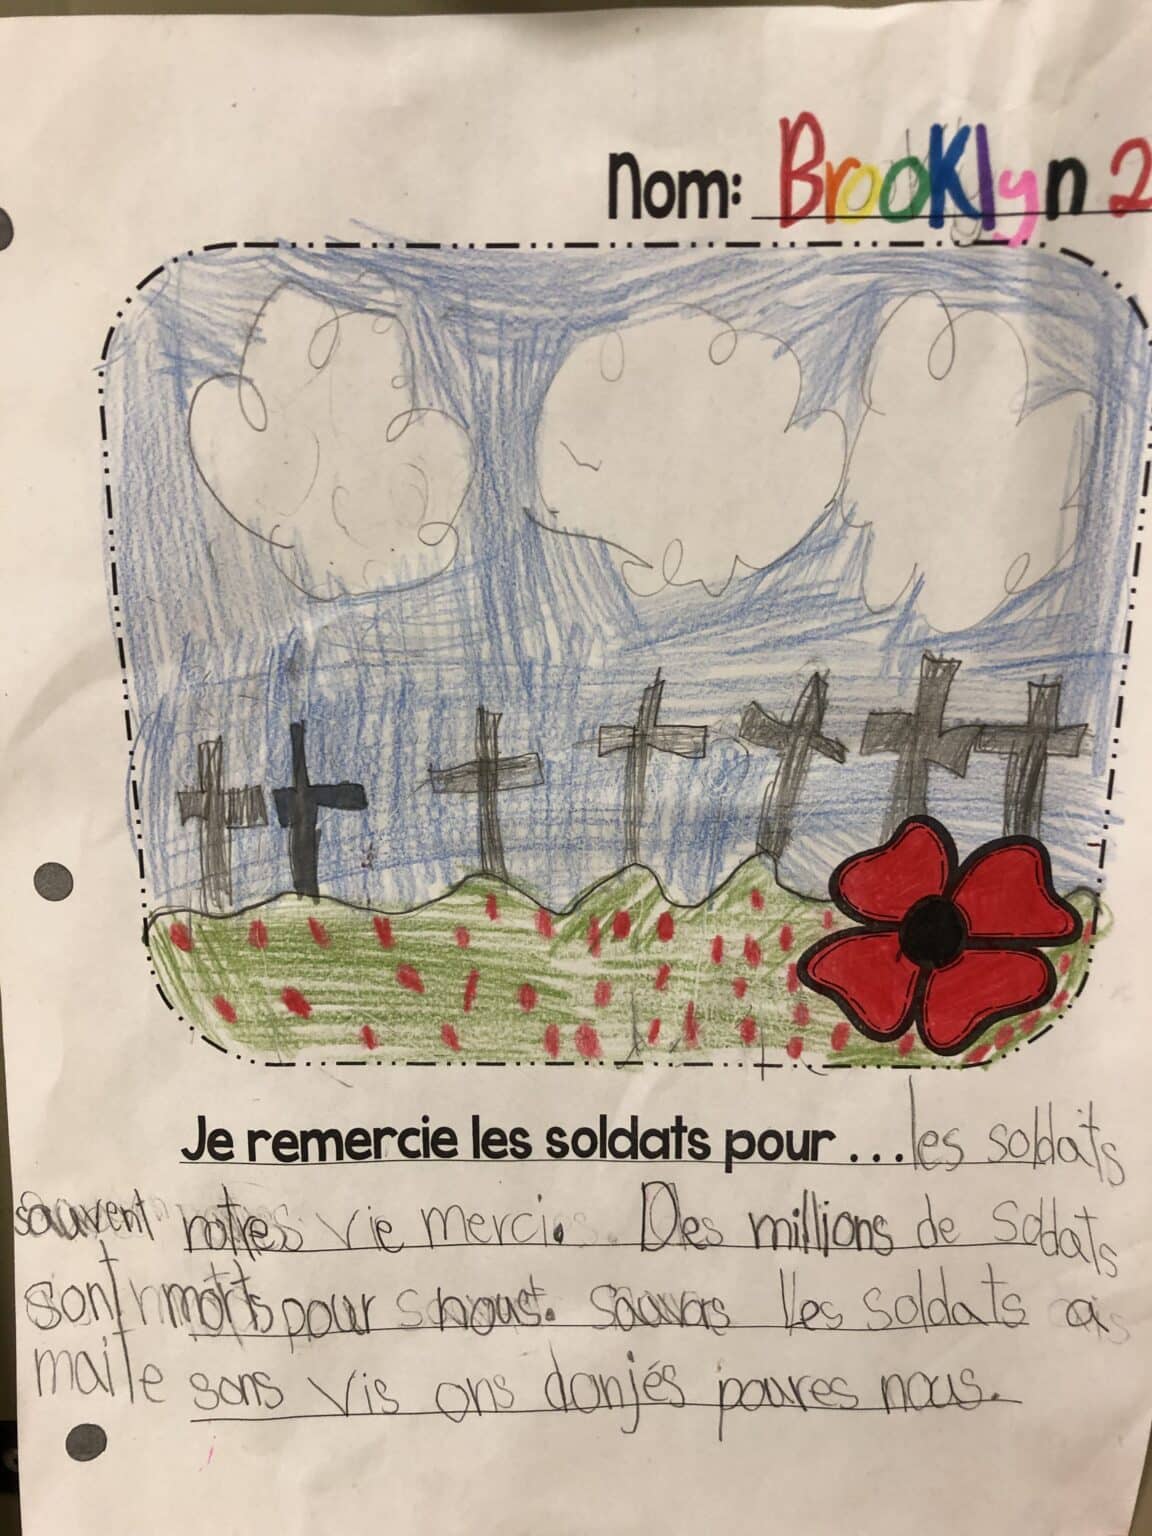 Nom: Brooklyn 2
Je remercie les soldats pour ... les soldats
sauvent notres vie merci. Des millions de soldats
sont morts pour nous. Les soldats a
maite sons vis ons donjés poures nous.